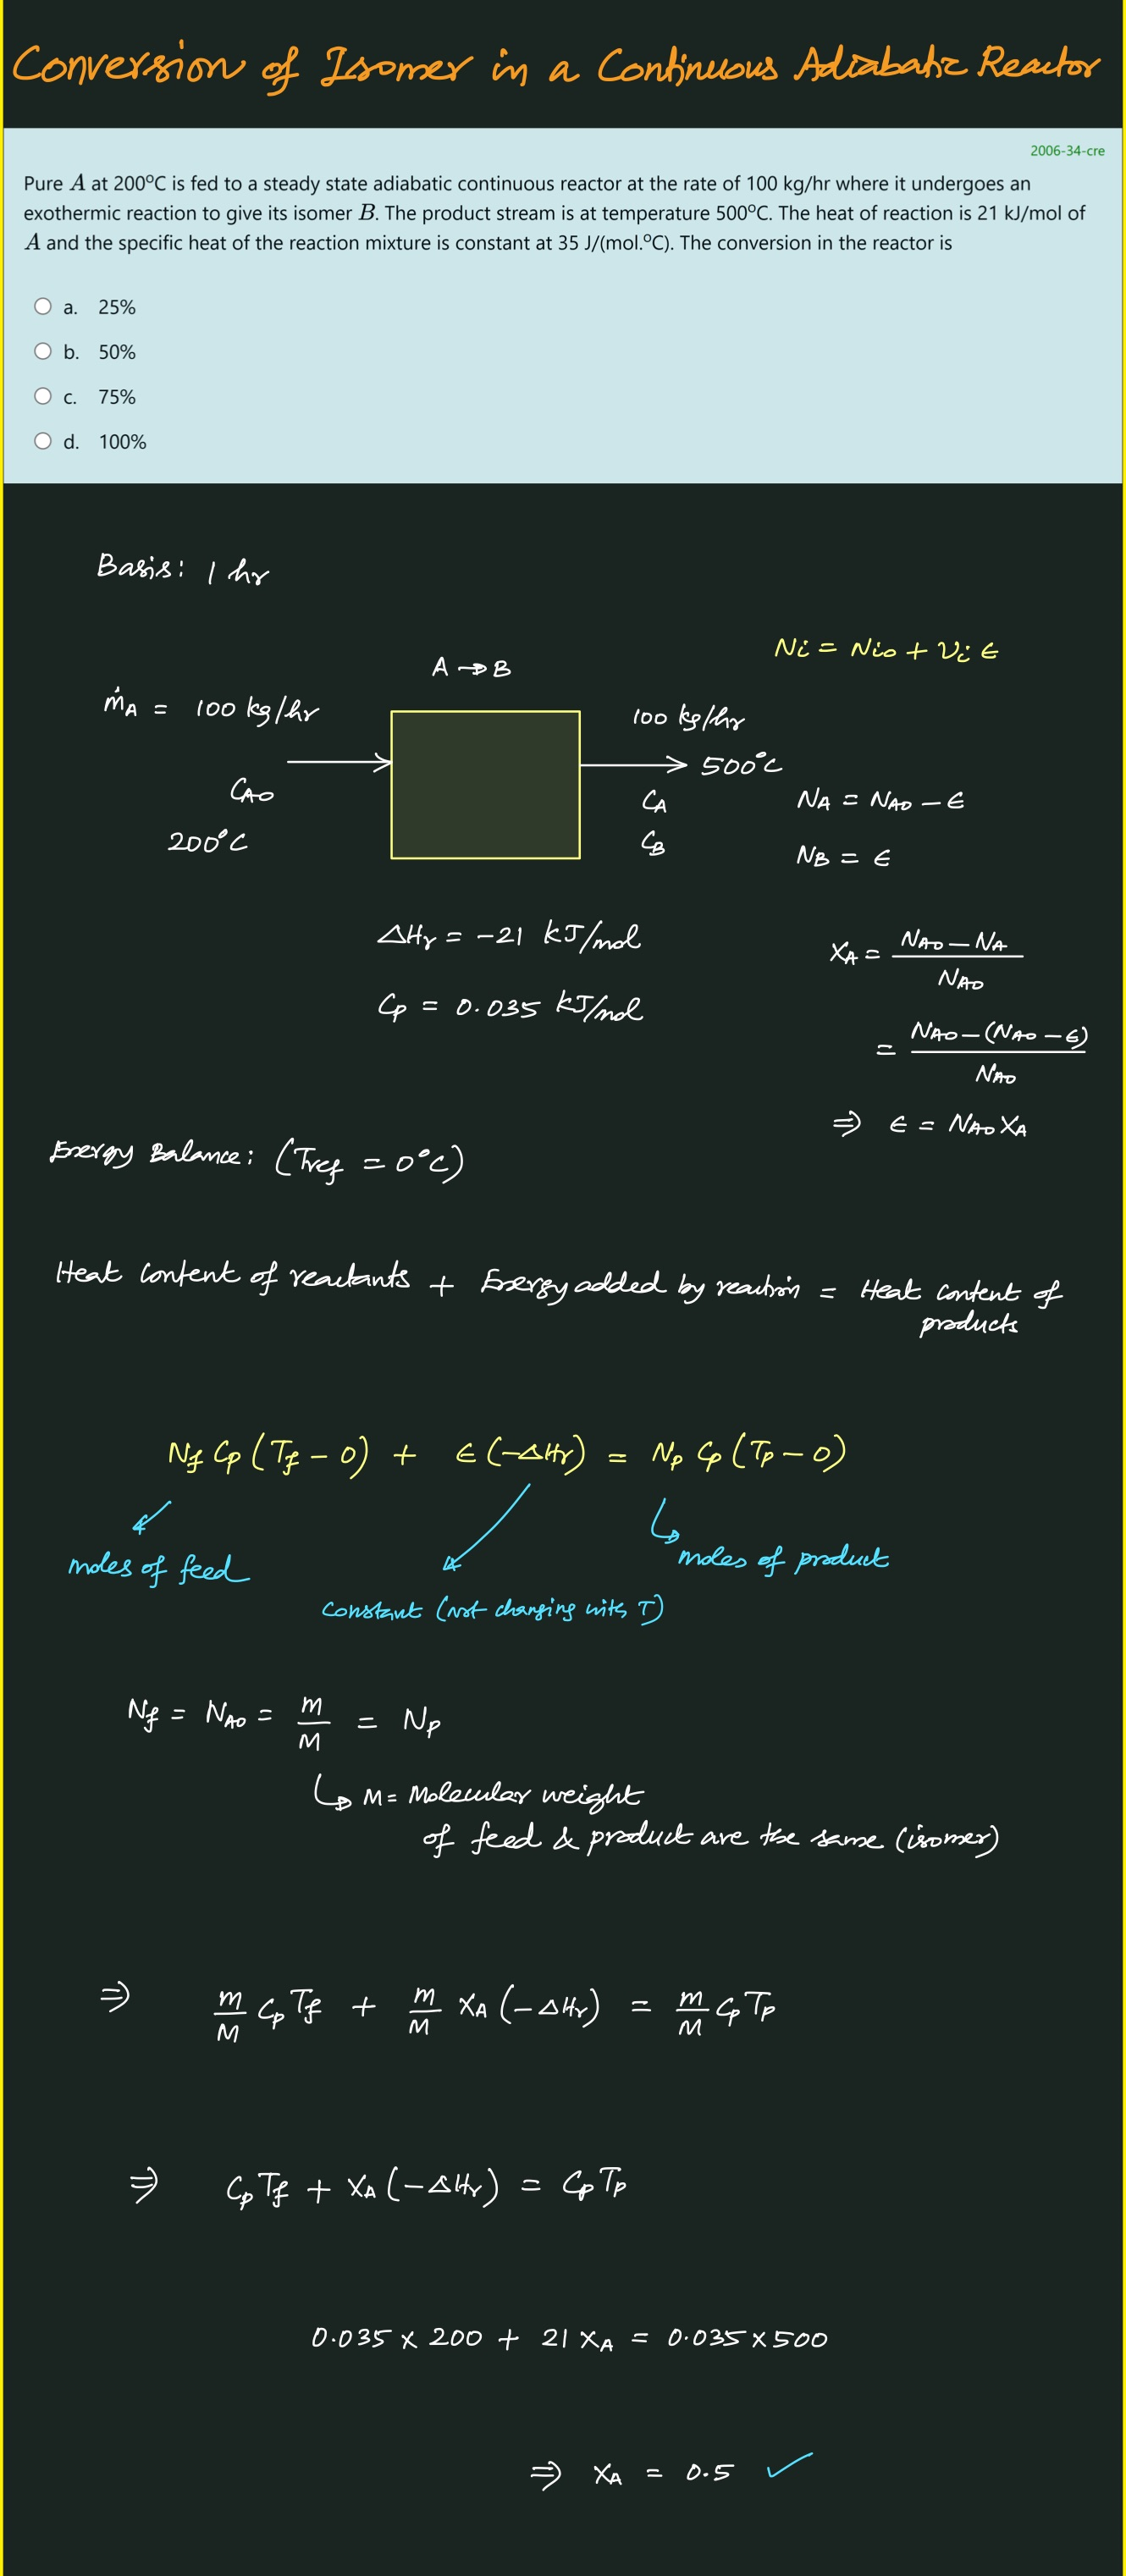 Conversion of Isomer in a Continuous Adiabatic Reactor
2006-34-cre
Pure A at 200°C is fed to a steady state adiabatic continuous reactor at the rate of 100 kg/hr where it undergoes an
exothermic reaction to give its isomer B. The product stream is at temperature 500°C. The heat of reaction is 21 kJ/mol of
A and the specific heat of the reaction mixture is constant at 35 J/(mol.°C). The conversion in the reactor is
a. 25%
b. 50%
c. 75%
d. 100%
Basis: 1 hr
Ni = Nio + νi ε
A → B
ṁA = 100 kg/hr
100 kg/hr
500°C
CAO
CA
NA = NAO − ε
200°C
CB
NB = ε
ΔHr = −21 kJ/mol
XA = (NAO − NA) / NAO
Cp = 0.035 kJ/mol
= (NAO − (NAO − ε)) / NAO
⇒ ε = NAO XA
Energy Balance: (Tref = 0°C)
Heat content of reactants + Energy added by reaction = Heat content of
products
Nf Cp (Tf − 0) + ε (−ΔHr) = Np Cp (Tp − 0)
moles of feed
moles of product
constant (not changing with T)
Nf = NAO = m/M = Np
M = Molecular weight
of feed & product are the same (isomer)
⇒ m/M Cp Tf + m/M XA (−ΔHr) = m/M Cp Tp
⇒ Cp Tf + XA (−ΔHr) = Cp Tp
0.035 × 200 + 21 XA = 0.035 × 500
⇒ XA = 0.5 ✓